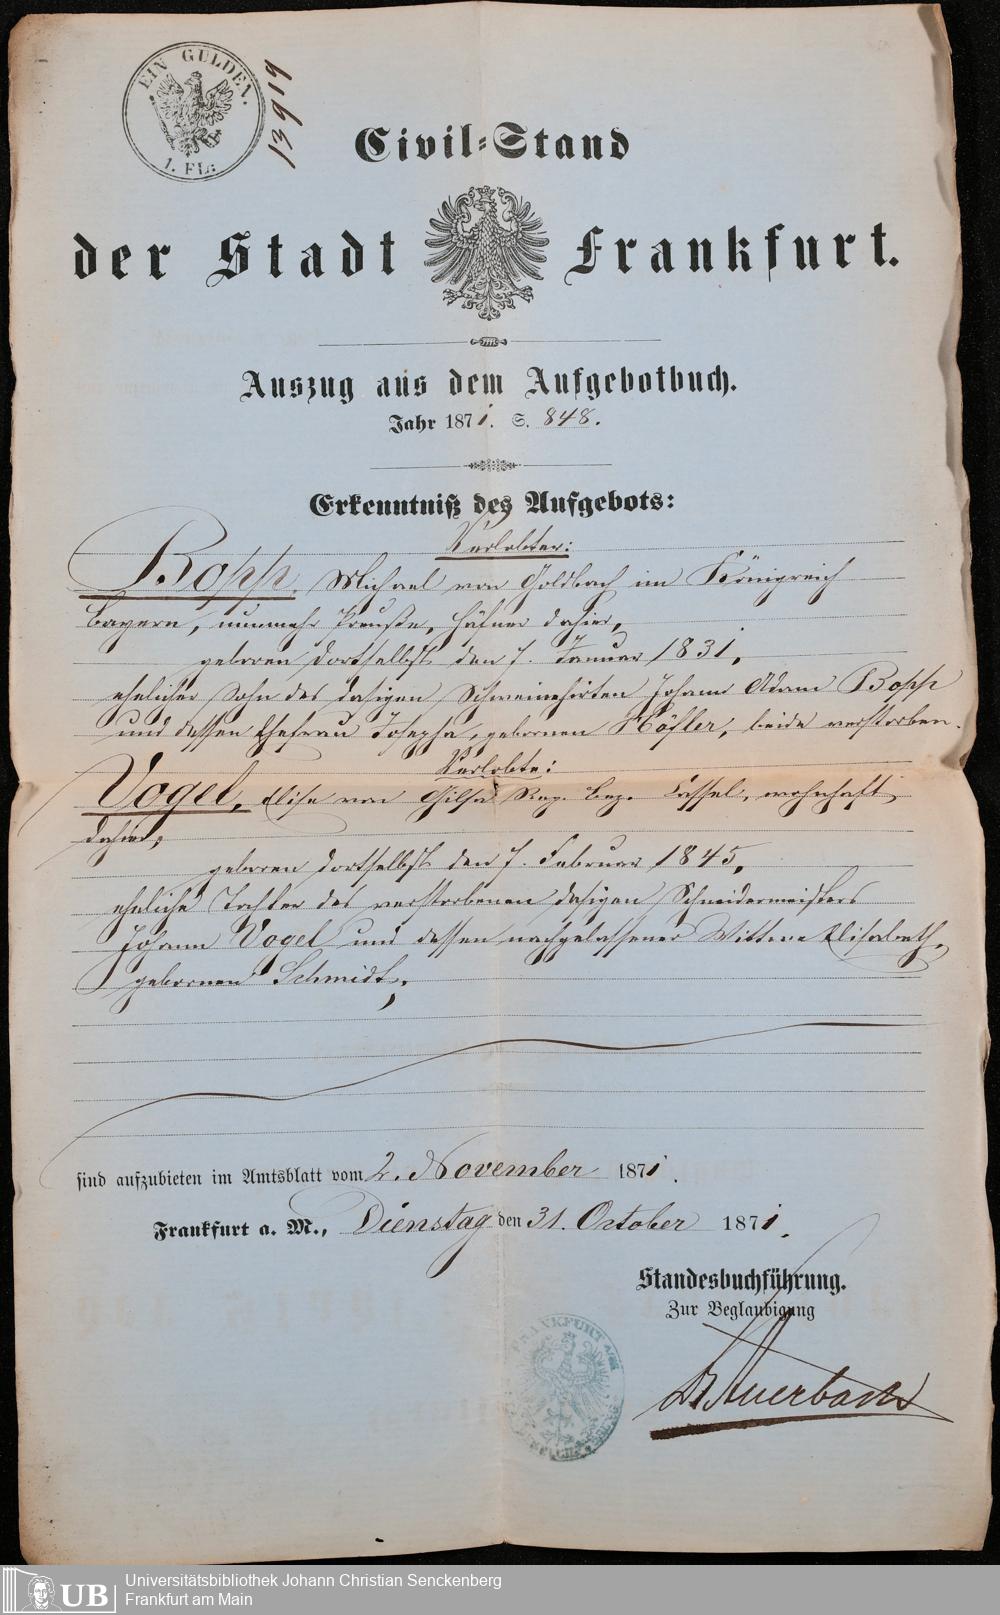 EIN GULDEN.
1. Fl:
13919
Civil-Stand
der Stadt Frankfurt.
Auszug aus dem Aufgebotbuch.
Jahr 1871. S. 848.
Erkenntniß des Aufgebots:
Verlobter:
Bopp, Michael von Goldbach im Königreich
Bayern, nunmehr Preuße, Häfner dahier,
geboren dortselbst den 7. Januar 1831,
ehelicher Sohn des dasigen Schweinehirten Johann Adam Bopp
und dessen Ehefrau Josepha, gebornen Höfler, beide verstorben.
Verlobte:
Vogel, Elise von Gilsa Reg. Bez. Cassel, wohnhaft
dahier,
geboren dortselbst den 7. Februar 1845,
eheliche Tochter des verstorbenen dasigen Schneidermeisters
Johann Vogel und dessen nachgelassener Wittwe Elisabeth,
gebornen Schmidt,
sind aufzubieten im Amtsblatt vom 2. November 1871.
Frankfurt a. M., Dienstag den 31. October 1871.
Standesbuchführung.
Zur Beglaubigung
Auerbach
FRANKFURT
UB Universitätsbibliothek Johann Christian Senckenberg
Frankfurt am Main